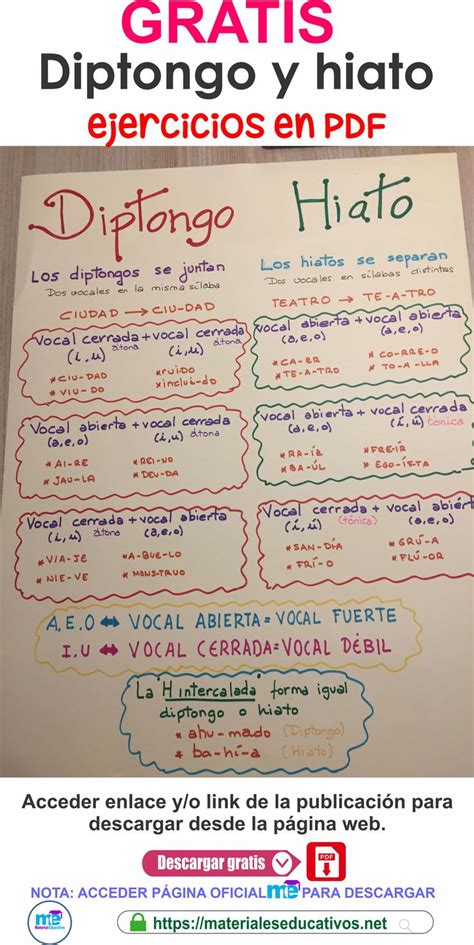 GRATIS
Diptongo y hiato
ejercicios en PDF
Diptongo
Los diptongos se juntan
Dos vocales en la misma sílaba
CIUDAD → CIU-DAD
Vocal cerrada + vocal cerrada
(i, u) átona (i, u) átona
* CIU-DAD
* VIU-DO
* ruido
* inclui-do
Vocal abierta + vocal cerrada
(a, e, o) (i, u) átona
* AI-RE
* JAU-LA
* REI-NO
* DEU-DA
Vocal cerrada + vocal abierta
(i, u) átona (a, e, o)
* VIA-JE
* NIE-VE
* A-BUE-LO
* MONSTRUO
Hiato
Los hiatos se separan
Dos vocales en sílabas distintas
TEATRO → TE-A-TRO
Vocal abierta + vocal abierta
(a, e, o) (a, e, o)
* CA-ER
* TE-A-TRO
* CO-RRE-O
* TO-A-LLA
Vocal abierta + vocal cerrada
(a, e, o) (i, u) tónica
* RA-ÍZ
* BA-ÚL
* FREÍR
* EGO-ÍSTA
Vocal cerrada + vocal abiert
(i, u) (tónica) (a, e, o)
* SAN-DÍA
* FRÍ-O
* GRÚ-A
* FLÚ-OR
A, E, O ↔ VOCAL ABIERTA = VOCAL FUERTE
I, U ↔ VOCAL CERRADA = VOCAL DÉBIL
La "H intercalada" forma igual
diptongo o hiato
* ahu-mado (Diptongo)
* ba-hí-a (Hiato)
Acceder enlace y/o link de la publicación para
descargar desde la página web.
Descargar gratis
PDF
NOTA: ACCEDER PÁGINA OFICIAL me PARA DESCARGAR
me
Material Educativo
https://materialeseducativos.net